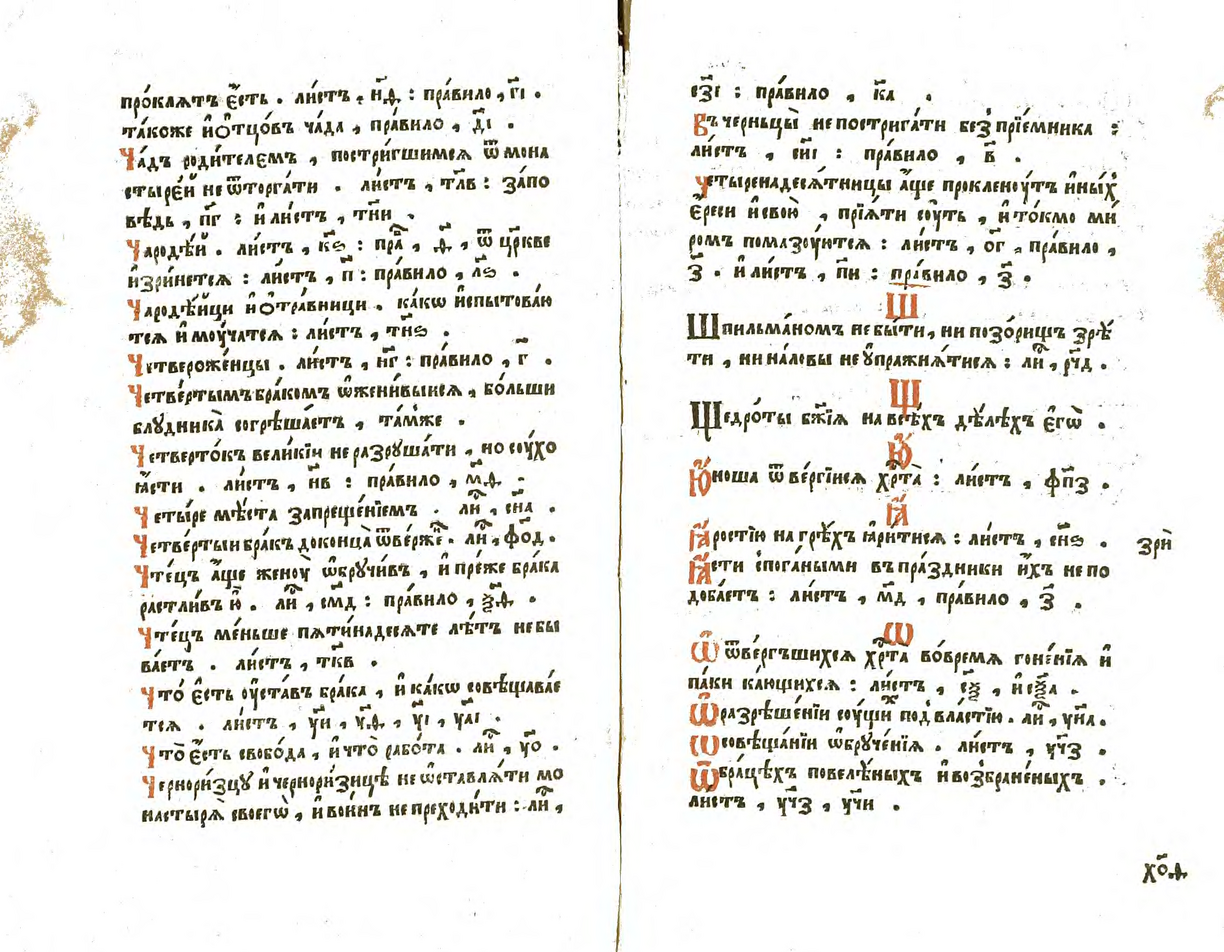 про́клѧтъ є҆́сть . ли́стъ , н҃ѳ : пра́вило , г҃і .
та́коже и҆ѻ҆тцо́въ ча́да , пра́вило , д҃і .
Ча́дъ роди́телємъ , постри́гшимсѧ ѿ мона
стыре́й не ѿторга́ти . ли́стъ , тл҃в : за́по
вѣдь , п҃г : и҆ ли́стъ , тн҃и .
Чародѣ́й . ли́стъ , к҃ѕ : пра̀в , ѳ҃ , ѿ цр҃кве
и҆зри́нетсѧ : ли́стъ , п҃ : пра́вило , л҃ѕ .
Чародѣ́йци и҆ ѻ҆тра́вници . ка́кѡ и҆спытова́ю
тсѧ и҆ моу́чатсѧ : ли́стъ , тн҃ѕ .
Четвероже́нцы . ли́стъ , н҃г : пра́вило , г҃ .
Четве́ртымъ бра́комъ ѡ҆жени́выисѧ , бо́льши
блудника̀ согрѣша́етъ , та́мже .
Четверто́къ вели́кїи не разруша́ти , но соухо
ꙗ҆́сти . ли́стъ , н҃в : пра́вило , м҃ѳ .
Четы́ре мѣ́ста запреще́нїемъ . лиⷭ҇ , сн҃а .
Четве́ртыи бра́къ доконца̀ ѿве́рже . лиⷭ҇ , фо҃д .
Чте́цъ а҆́ще женоу̀ ѡ҆бручи́въ , и҆ пре́же бра́ка
растли́въ ю҆̀ . лиⷭ҇ , см҃д : пра́вило , ѯ҃ѳ .
Чте́цъ ме́ньше пѧти́надесѧте лѣ́тъ небы
ва́етъ . ли́стъ , тк҃в .
Что́ є҆́сть оу҆ста́въ бра́ка , и҆ ка́кѡ совѣщава́е
тсѧ . ли́стъ , у҃и , у҃ѳ , у҃і , уа҃і .
Что̀ є҆́сть свобо́да , и҆ что̀ рабо́та . лиⷭ҇ , уо҃ .
Черно́ри́зцу и҆ черно́ри́зицѣ не ѡ҆ставлѧ́ти мо
настырѧ̀ своегѡ̀ , и҆ во́инъ не преходи́ти : лиⷭ҇ ,
сз҃і : пра́вило , к҃а .
Въ черньцы̀ не постриѓати без̾ прїе́мника :
ли́стъ , си҃і : пра́вило , в҃ .
Четыренадесѧ́тницы а҆́ще проклену́тъ и҆ны́хъ
є҆́реси и҆ свою̀ , прїѧ́ти соу́ть , и҆ то́кмо ми́
ромъ помазоу́ютсѧ : ли́стъ , о҃г , пра́вило ,
з҃ . и҆ ли́стъ , п҃и : пра́вило , з҃ .
Ш
Шпильма́номъ не бы́ти , ни позо́рищъ зрѣ
ти , ни на ловы̀ не оу҆пражнѧ́тисѧ : лиⷭ҇ , рч҃д .
Щ
Щедро́ты бж҃їѧ на всѣ́хъ дѣ́лѣхъ є҆гѡ̀ .
Ю҆
Ю҆́ноша ѿве́ргїисѧ хрⷭ҇та̀ : ли́стъ , фп҃з .
Ꙗ҆
Ꙗ҆́ростїю на грѣ́хъ ꙗ҆ри́тисѧ : ли́стъ , сн҃ѕ .
зрѝ
Ꙗ҆́сти споганы́ми въ пра́здники и҆́хъ не по
доба́етъ : ли́стъ , м҃д , пра́вило , з҃ .
Ѡ
Ѡ҆ ѿве́ргъшихсѧ хрⷭ҇та во́времѧ гоне́нїѧ и҆
па́ки ка́ющихсѧ : ли́стъ , сѯ҃ , и҆ сѯ҃а .
Ѡ҆ разрѣше́нїи соу́щих под̾ вла́стїю . лиⷭ҇ , ун҃а .
Ѡ совѣща́нїи ѡ҆бруче́нїѧ . ли́стъ , уч҃з .
Ѡ҆ бра́цѣхъ повелѣ́ныхъ и҆ воз̾бране́ныхъ .
ли́стъ , уч҃з , уч҃и .
хо҃ѳ